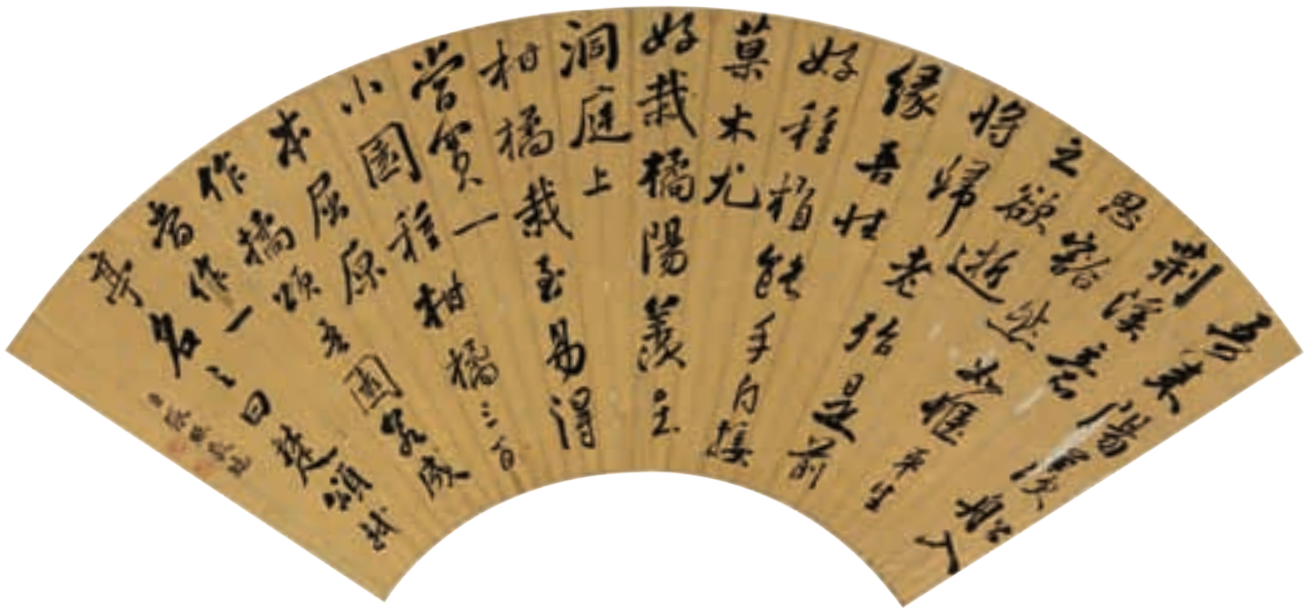 吾来陽羨船入
荊溪意
思豁然如愜平生
之欲逝
将歸老殆是前
緣吾性
好種植能手自接
菓木尤
好栽橘陽羨在
洞庭上
柑橘栽至易得
當買一
小園種柑橘三百
本屈原
作橘頌吾園若成
當作一
亭名之曰楚頌軾